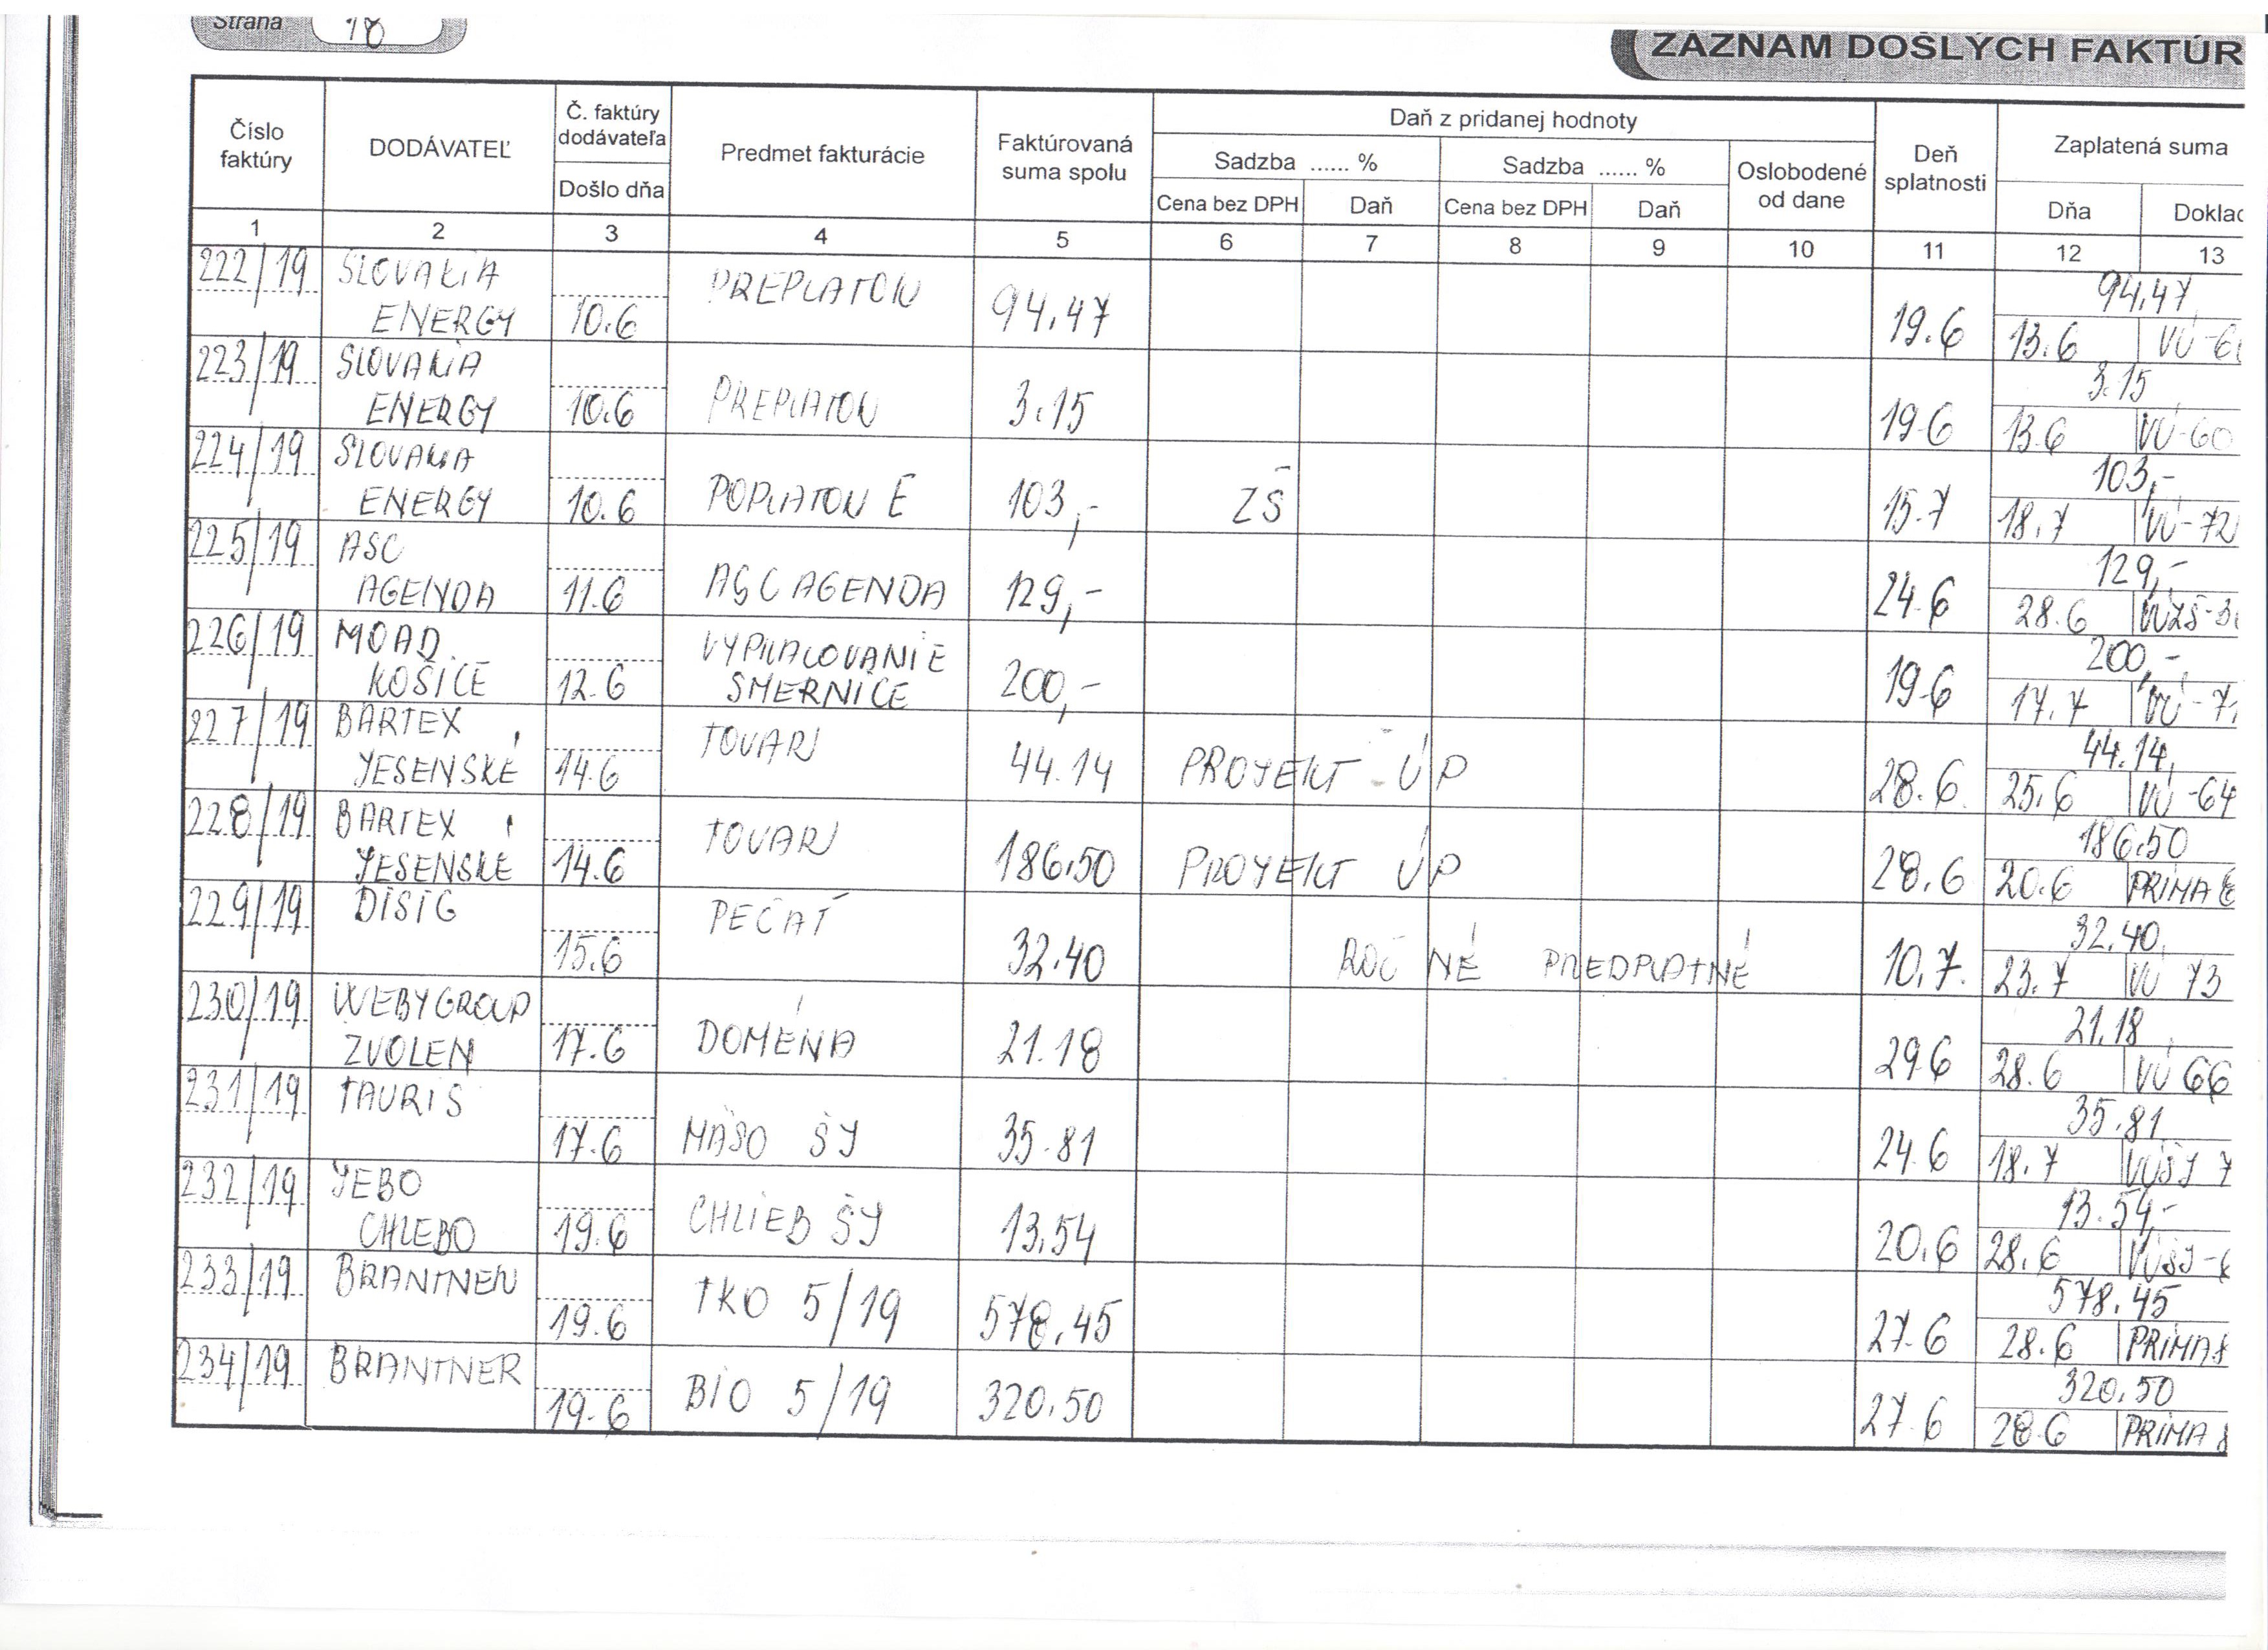 Strana 18
ZÁZNAM DOŠLÝCH FAKTÚR
Číslo faktúry
DODÁVATEĽ
Č. faktúry dodávateľa
Došlo dňa
Predmet fakturácie
Faktúrovaná suma spolu
Daň z pridanej hodnoty
Sadzba ...... %
Sadzba ...... %
Oslobodené od dane
Cena bez DPH
Daň
Cena bez DPH
Daň
Deň splatnosti
Zaplatená suma
Dňa
1 2 3 4 5 6 7 8 9 10 11 12 13
222/19 SLOVAKIA PREPLATOK 94,47
ENERGY 10.6 94,47 19.6 13.6
223/19 SLOVAKIA 3.15
ENERGY 10.6 PREPLATOK 3.15 19.6 13.6 VÚ-60
224/19 SLOVAKIA 103,-
ENERGY 10.6 POPLATOK E 103,- ZŠ 15.7 18.7 VÚ-72
225/19 ASC 129,-
AGENDA 11.6 ASC AGENDA 129,- 24.6 28.6
226/19 MOAD VYPRACOVANIE 200,-
KOŠICE 12.6 SMERNICE 200,- 19.6 17.7
227/19 BARTEX TOVAR 44.14
JESENSKÉ 14.6 44.14 PROJEKT - ÚP 28.6 25.6 VÚ-64
228/19 BARTEX TOVAR 186.50
JESENSKÉ 14.6 186.50 PROJEKT ÚP 28.6 20.6 PRIMA
229/19 DISIG PEČAŤ 32.40
15.6 32.40 ROČNÉ PREDPLATNÉ 10.7. 23.7 VÚ 73
230/19 WEBYGROUP 21.18
ZVOLEN 17.6 DOMÉNA 21.18 29.6 28.6 VÚ 66
231/19 TAURIS 35.81
17.6 MÄSO ŠJ 35.81 24.6 18.7 VÚŠJ 7
232/19 JEBO 13.54,-
CHLEBO 19.6 CHLIEB ŠJ 13.54 20.6 28.6
233/19 BRANTNER TKO 5/19 578.45
19.6 578.45 27.6 28.6 PRIMA
234/19 BRANTNER 320.50
19.6 BIO 5/19 320.50 27.6 28.6 PRIMA